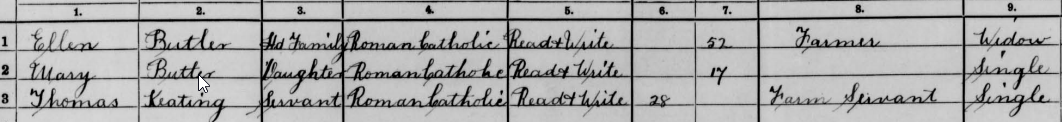 1. 2. 3. 4. 5. 6. 7. 8. 9.
1 Ellen Butler Hd Family Roman Catholic Read & Write 52 Farmer Widow
2 Mary Butler Daughter Roman Catholic Read & Write 17 Single
3 Thomas Keating Servant Roman Catholic Read & Write 28 Farm Servant Single